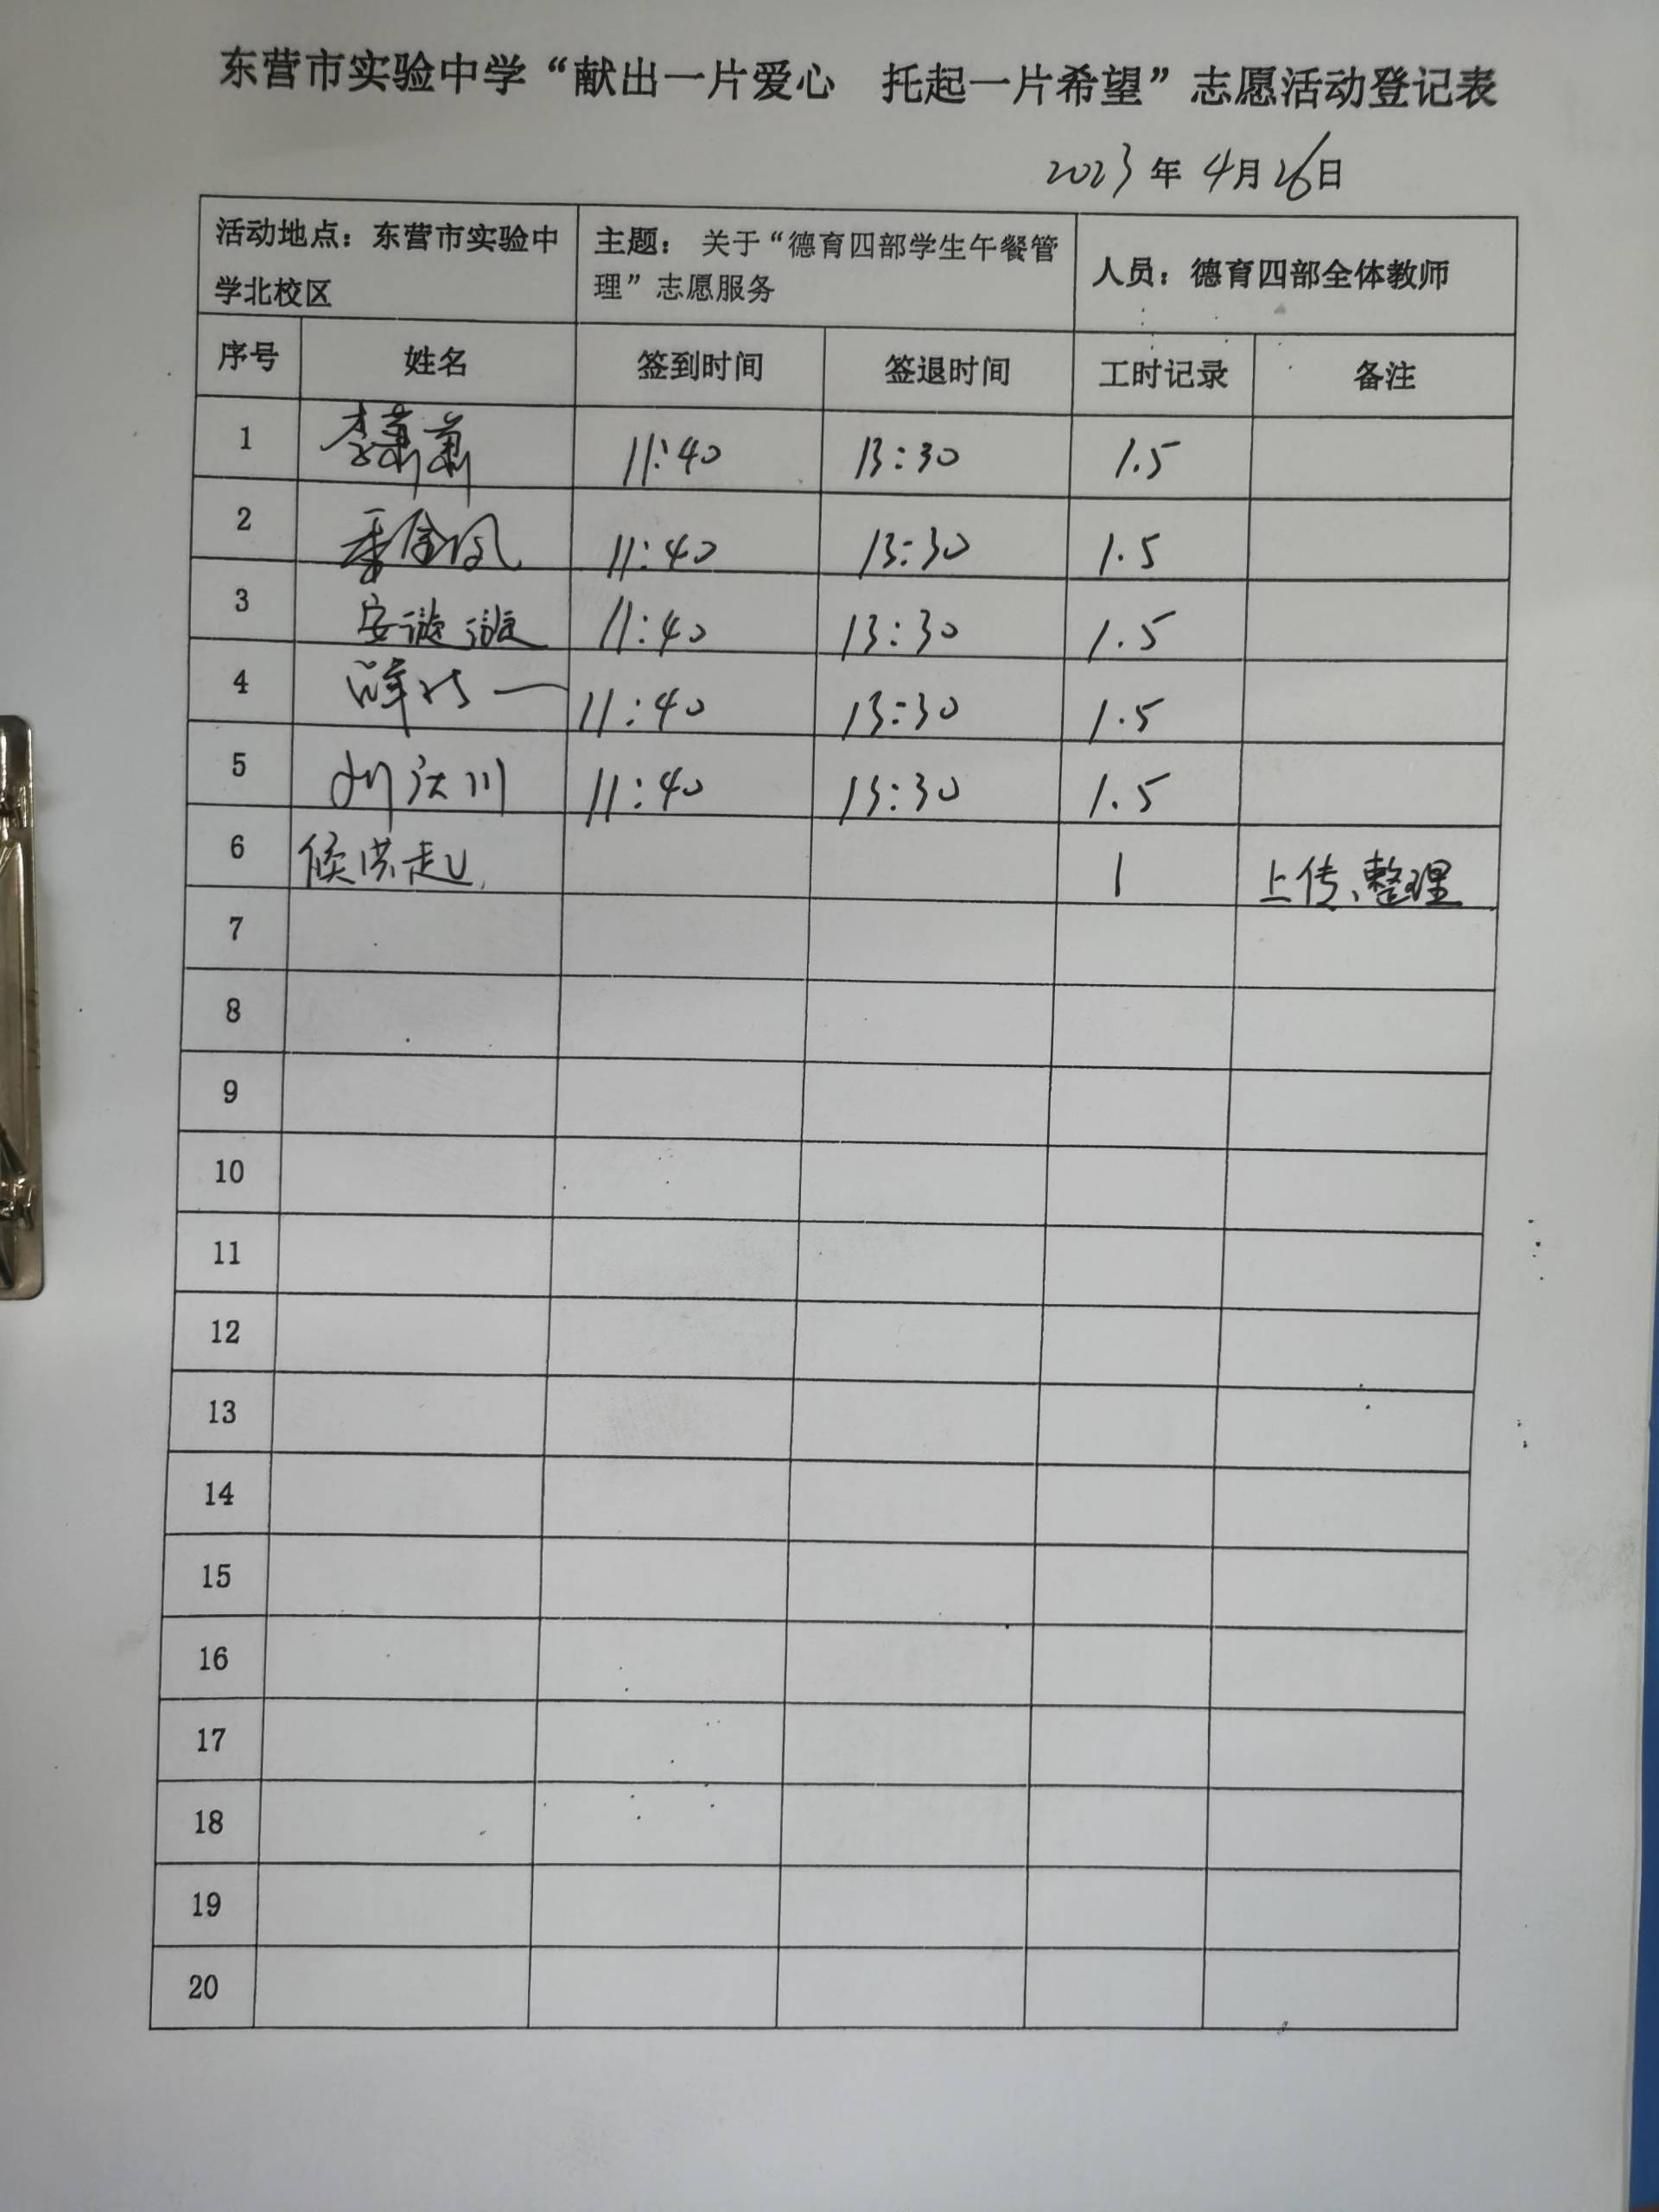 东营市实验中学“献出一片爱心　托起一片希望”志愿活动登记表
2023年4月26日
活动地点：东营市实验中学北校区 主题：关于“德育四部学生午餐管理”志愿服务 人员：德育四部全体教师
序号 姓名 签到时间 签退时间 工时记录 备注
1 李萧萧 11:40 13:30 1.5
2 11:40 13:30 1.5
3 安璇璇 11:40 13:30 1.5
4 11:40 13:30 1.5
5 刘汉川 11:40 13:30 1.5
6 侯洪起 1 上传、整理
7
8
9
10
11
12
13
14
15
16
17
18
19
20